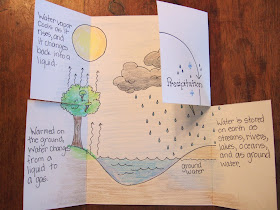 Water vapor
cools as it
rises, and
it changes
back into a
liquid.
Precipitation
Warmed on
the ground,
water changes
from a
liquid to
a gas.
Water is stored
on earth as
streams, rivers,
lakes, oceans,
and as ground
water.
ground
water